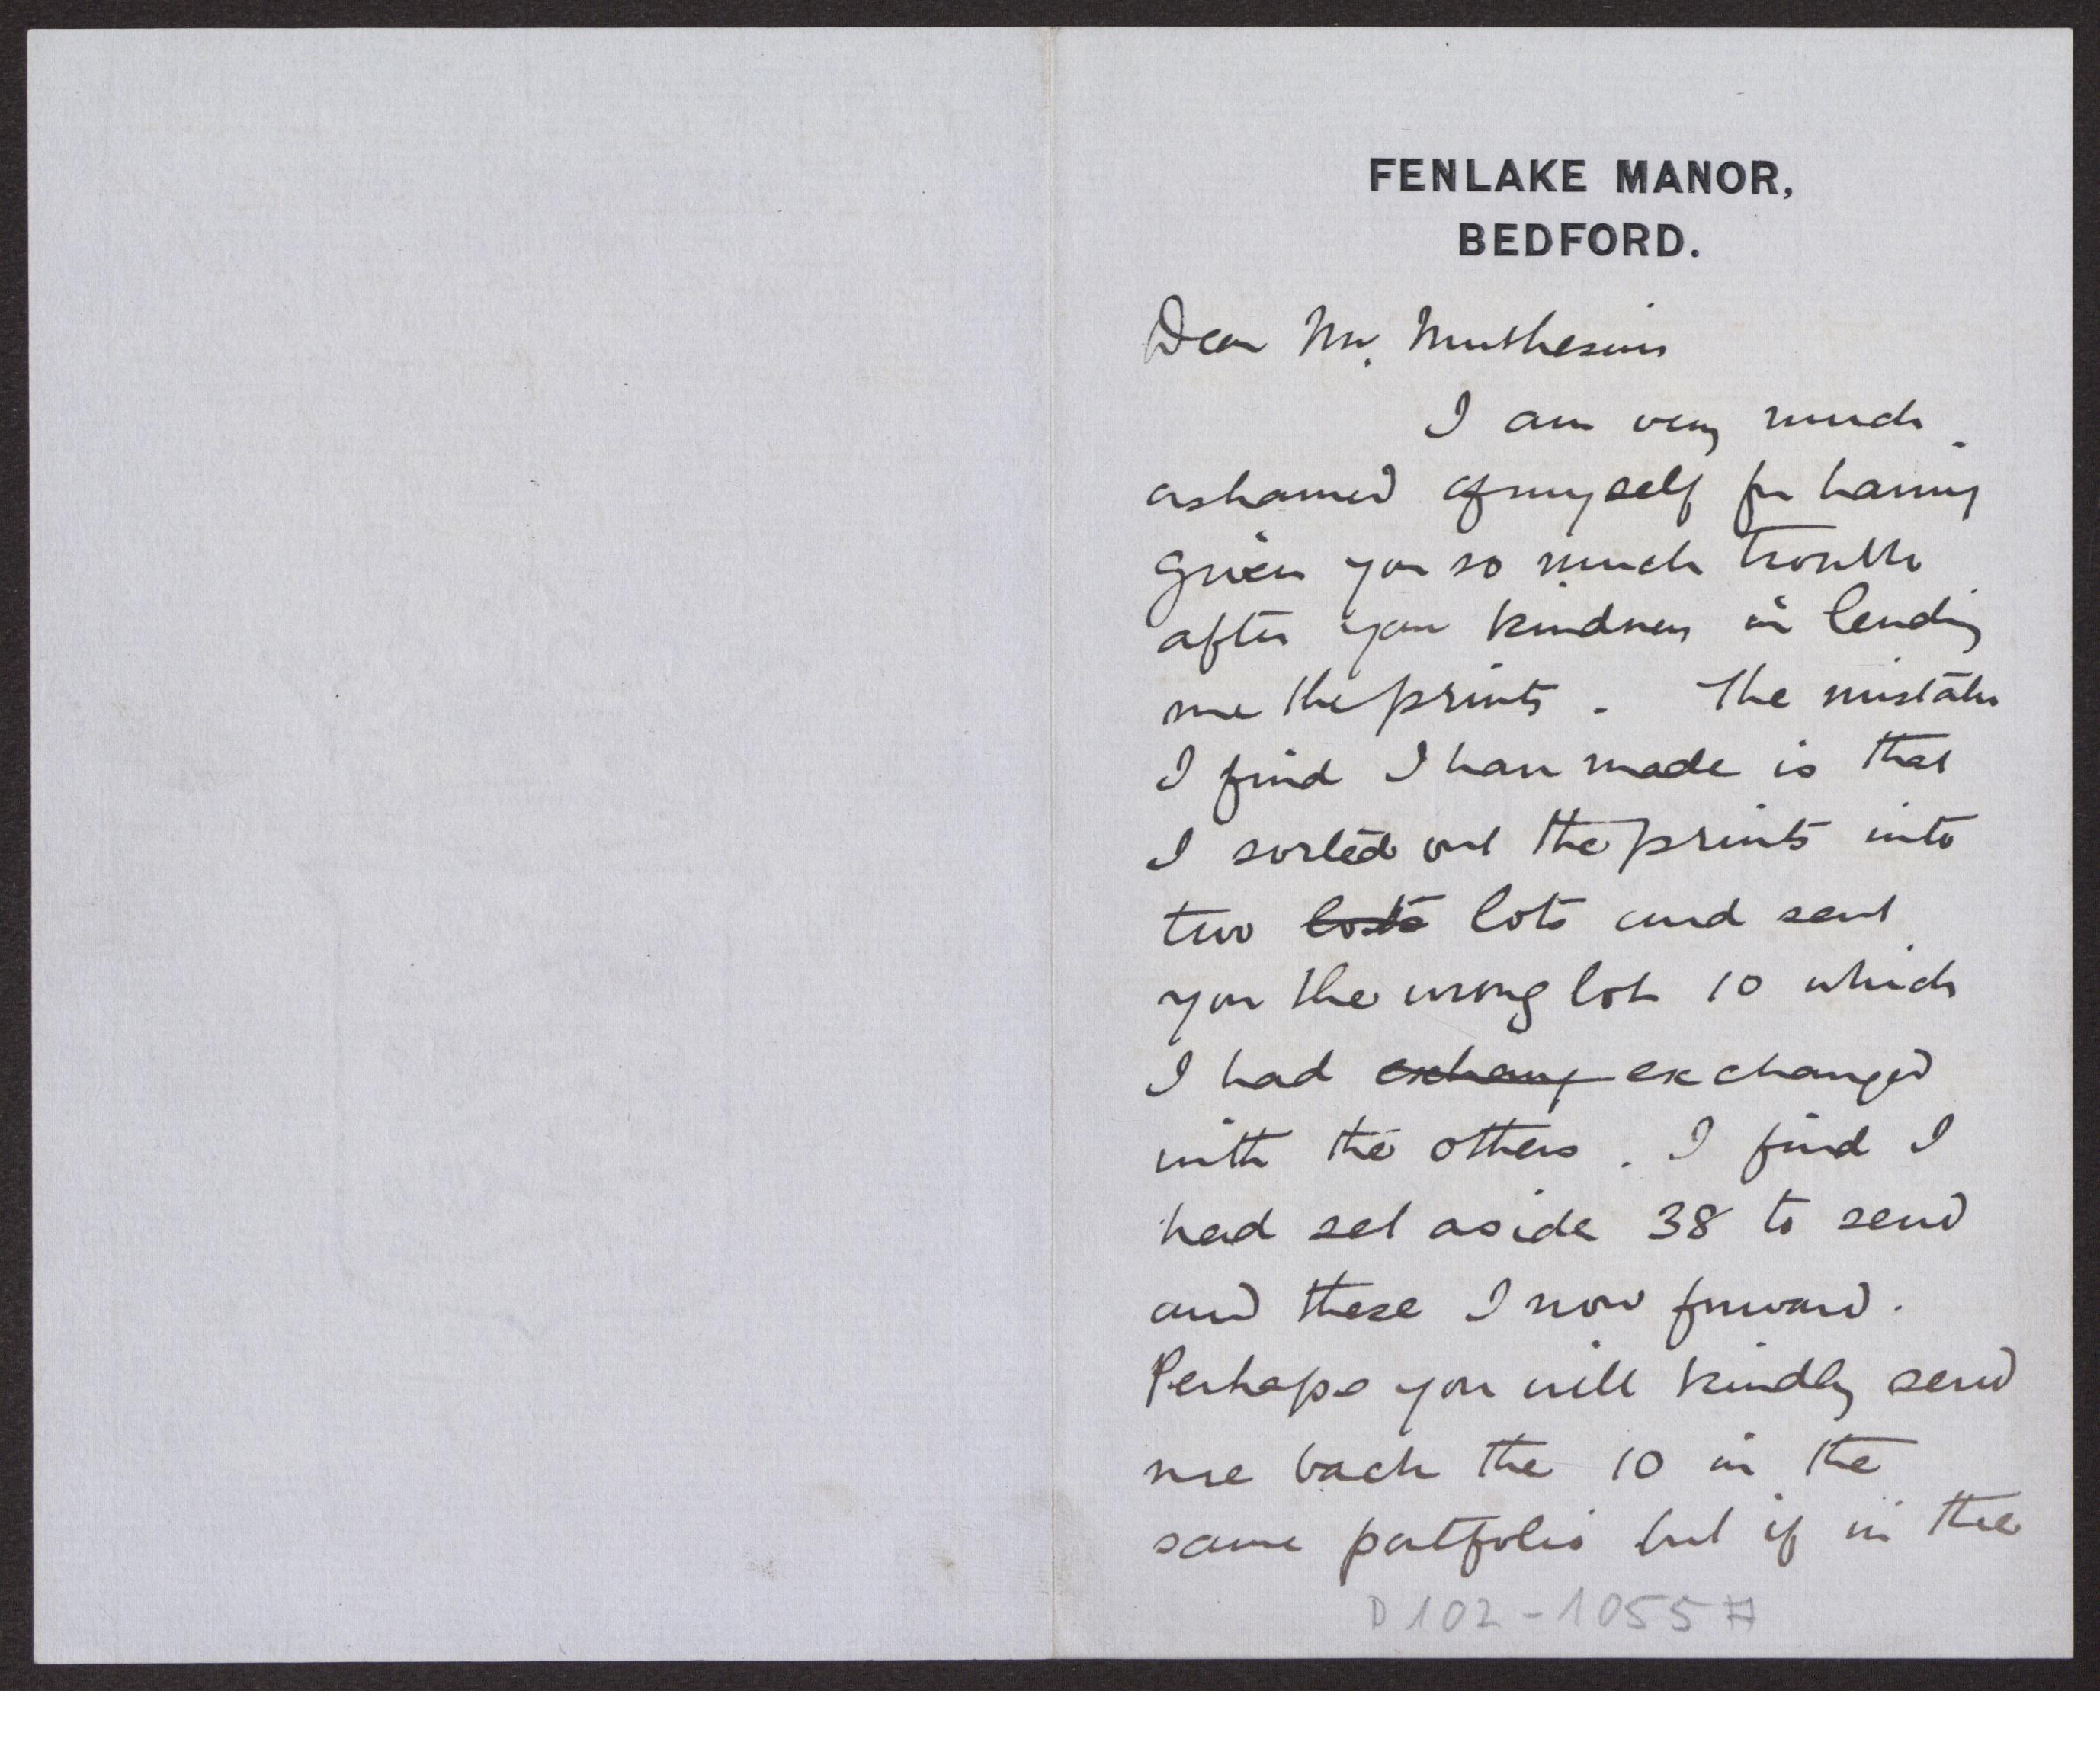 FENLAKE MANOR,
BEDFORD.
Dear Mr. Muthesius
I am very much
ashamed of myself for having
given you so much trouble
after your kindness in lending
me the prints. The mistake
I find I have made is that
I sorted out the prints into
two lots lots and sent
you the wrong lot 10 which
I had exchang exchanged
with the others. I find I
had set aside 38 to send
and these I now forward.
Perhaps you will kindly send
me back the 10 in the
same portfolio but if in the
D 102-1055 A